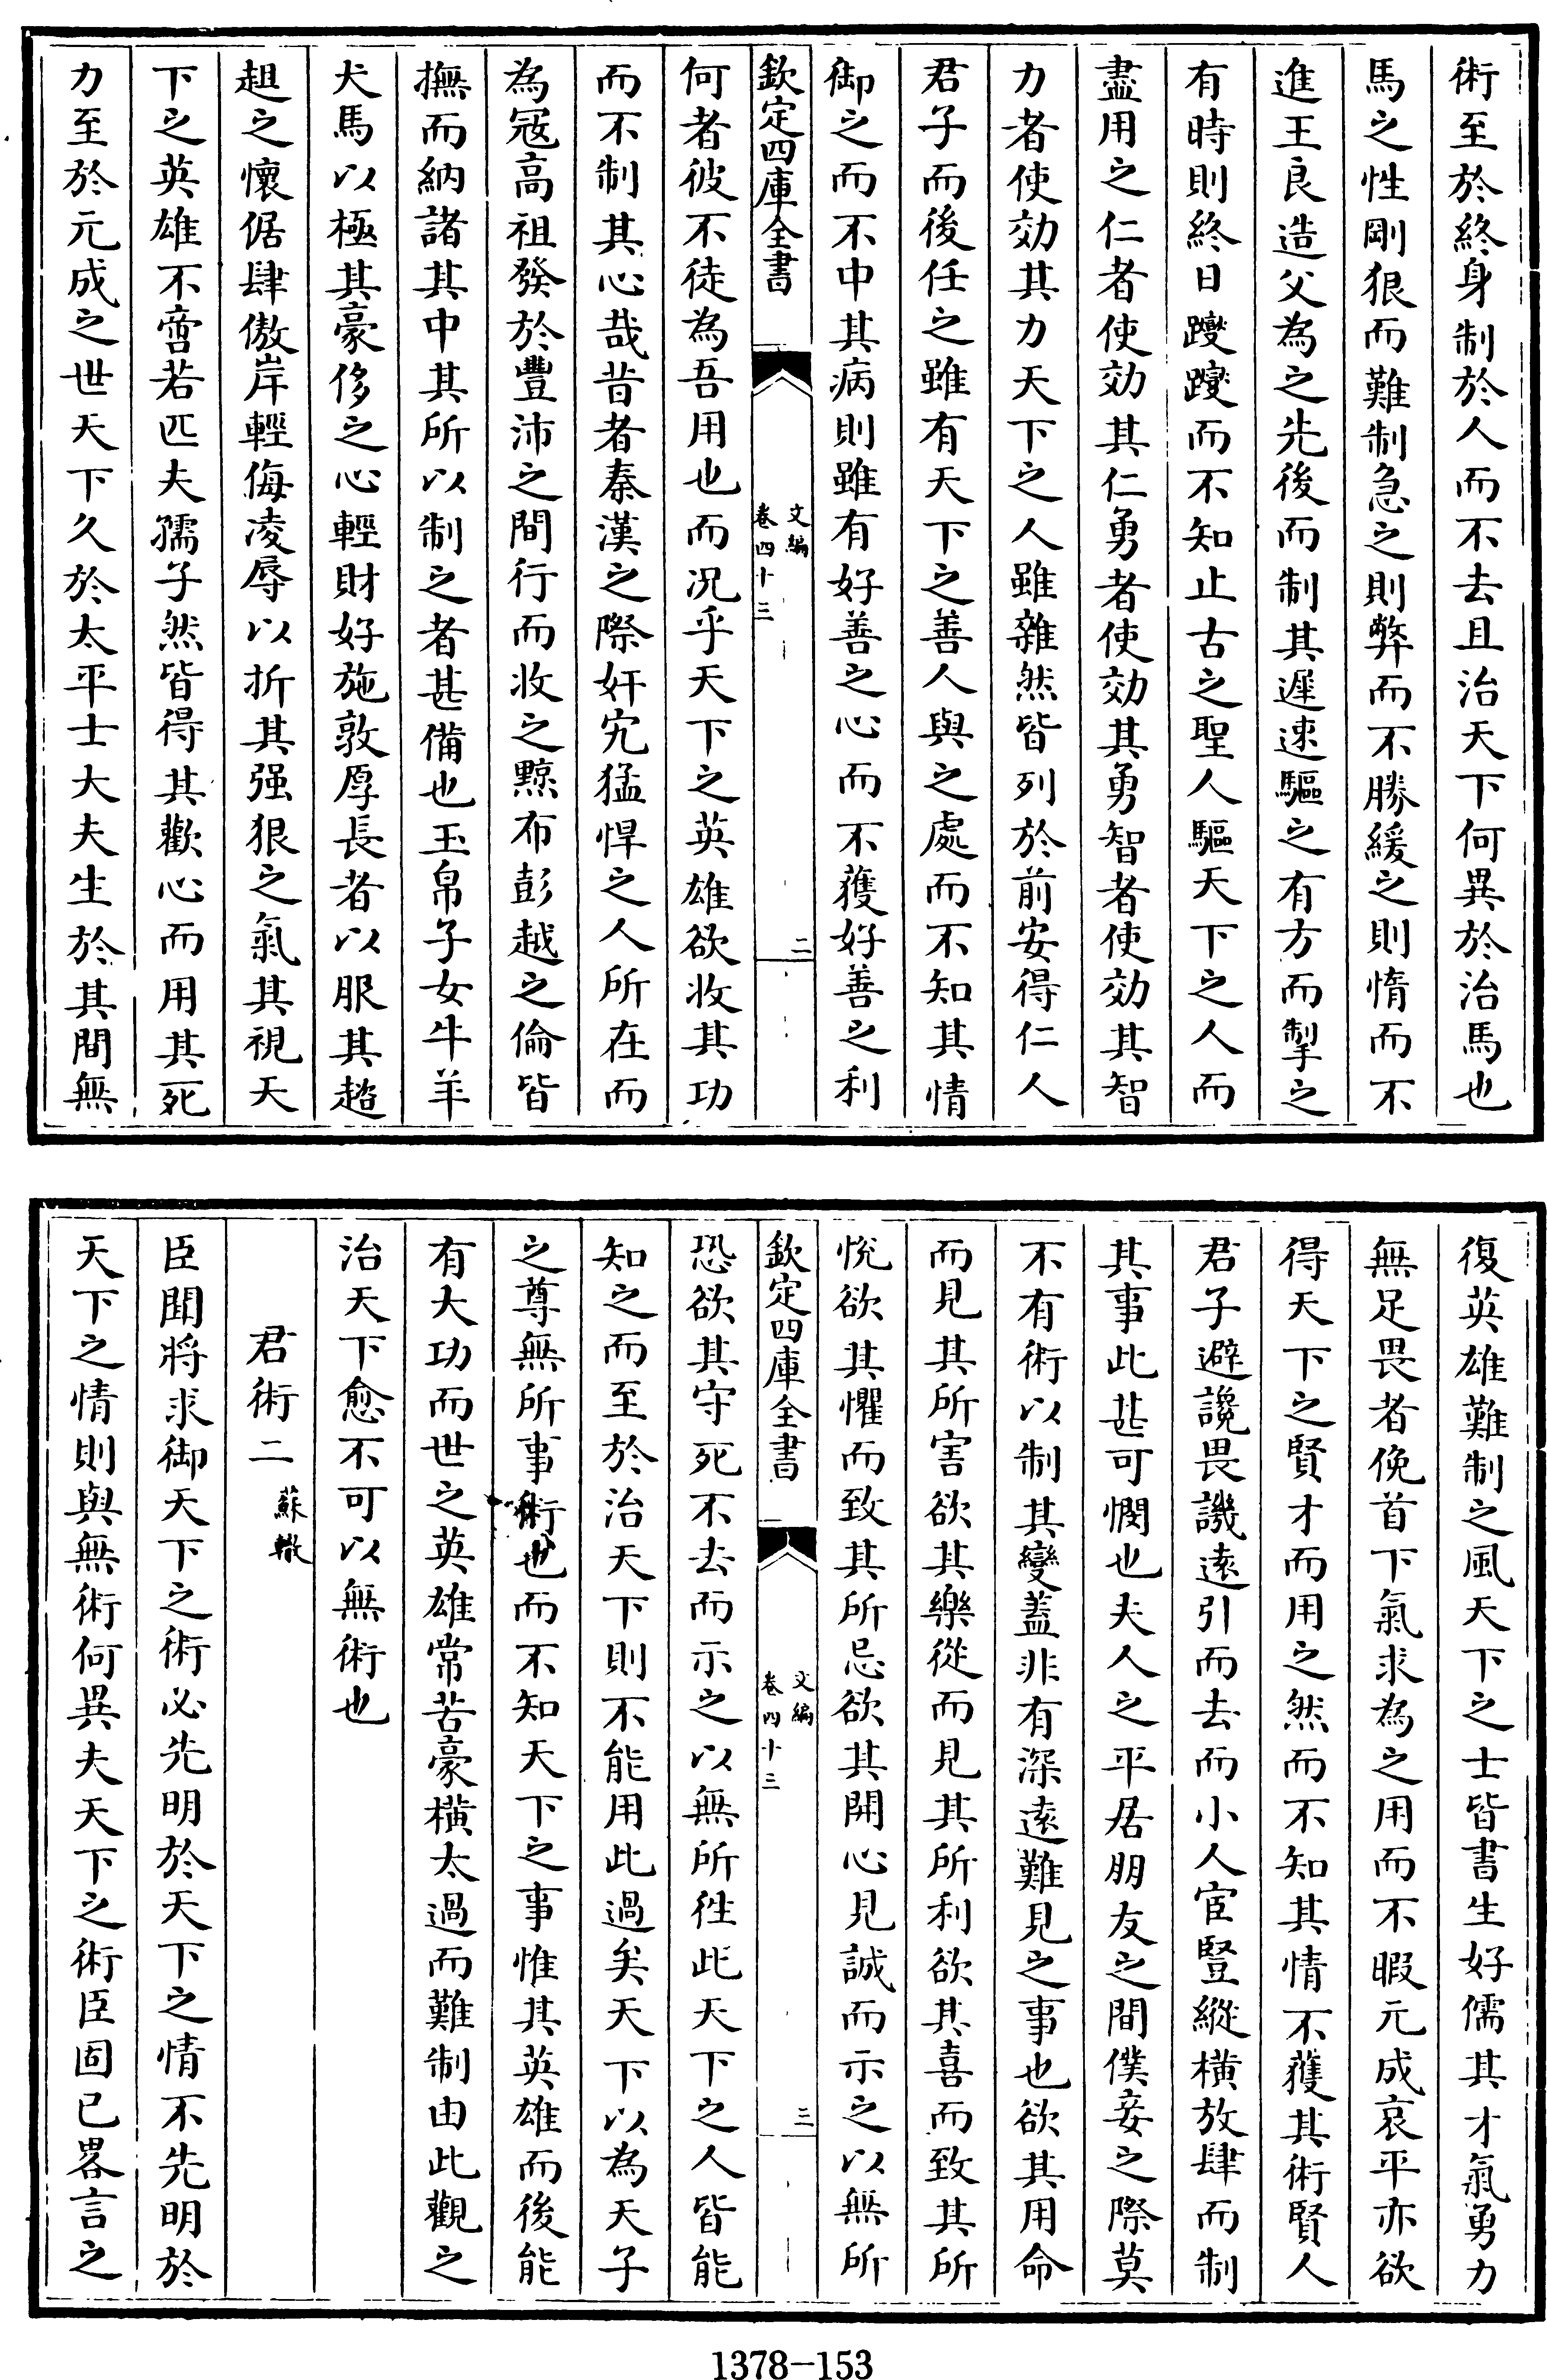 術至於終身制於人而不去且治天下何異於治馬也
馬之性剛狠而難制急之則弊而不勝緩之則惰而不
進王良造父為之先後而制其遲速驅之有方而掣之
有時則終日躞躞而不知止古之聖人驅天下之人而
盡用之仁者使効其仁勇者使効其勇智者使効其智
力者使効其力天下之人雖雜然皆列於前安得仁人
君子而後任之雖有天下之善人與之處而不知其情
御之而不中其病則雖有好善之心而不獲好善之利
欽定四庫全書
文編
卷四十三
二
何者彼不徒為吾用也而况乎天下之英雄欲收其功
而不制其心哉昔者秦漢之際奸宄猛悍之人所在而
為冦高祖發於豐沛之間行而收之黥布彭越之倫皆
撫而納諸其中其所以制之者甚備也玉帛子女牛羊
犬馬以極其豪侈之心輕財好施敦厚長者以服其趦
趄之懷倨肆傲岸輕侮凌辱以折其强狠之氣其視天
下之英雄不啻若匹夫孺子然皆得其歡心而用其死
力至於元成之世天下久於太平士大夫生於其間無
復英雄難制之風天下之士皆書生好儒其才氣勇力
無足畏者俛首下氣求為之用而不暇元成哀平亦欲
得天下之賢才而用之然而不知其情不獲其術賢人
君子避讒畏譏逺引而去而小人宦豎縱橫放肆而制
其事此甚可憫也夫人之平居朋友之間僕妾之際莫
不有術以制其變蓋非有深逺難見之事也欲其用命
而見其所害欲其樂從而見其所利欲其喜而致其所
悅欲其懼而致其所忌欲其開心見誠而示之以無所
欽定四庫全書
文編
卷四十三
三
恐欲其守死不去而示之以無所徃此天下之人皆能
知之而至於治天下則不能用此過矣天下以為天子
之尊無所事術也而不知天下之事惟其英雄而後能
有大功而世之英雄常苦豪橫太過而難制由此觀之
治天下愈不可以無術也
君術二 蘇轍
臣聞將求御天下之術必先明於天下之情不先明於
天下之情則與無術何異夫天下之術臣固已畧言之
1378-153